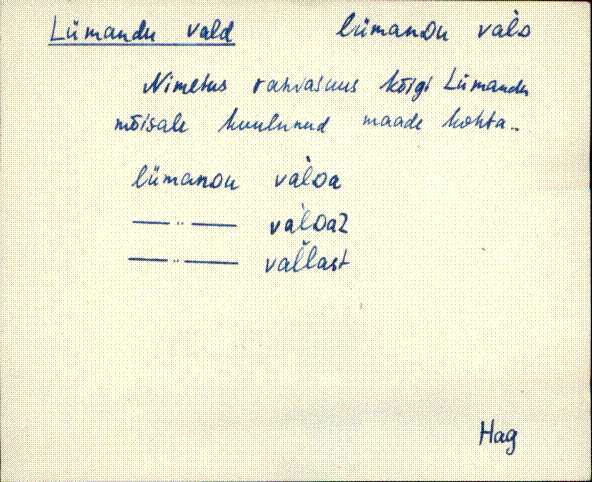 Lümandu vald lümanDu vàlD
Nimetus rahvasuus kõigi Lümandu
mõisale kuulunud maade kohta.
lümanDu vàlDa
—— " —— vàlDaz
—— " —— vallast
Hag